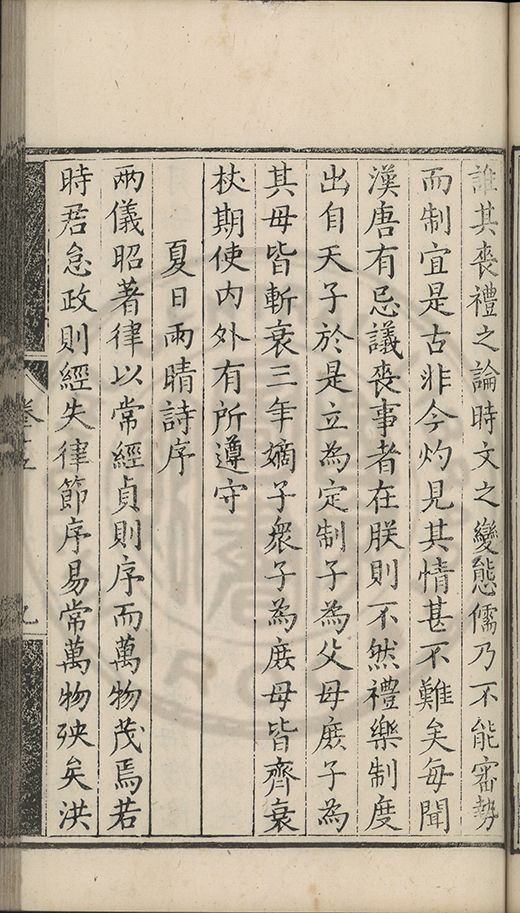 誰其喪禮之論時文之變態儒乃不能審勢
而制宜是古非今灼見其情甚不難矣每聞
漢唐有忌議喪事者在朕則不然禮樂制度
出自天子於是立為定制子為父母庶子為
其母皆斬衰三年嫡子衆子為庶母皆齊衰
杖期使內外有所遵守
夏日雨晴詩序
兩儀昭著律以常經貞則序而萬物茂焉若
時君怠政則經失律節序易常萬物殃矣洪
卷十五
九